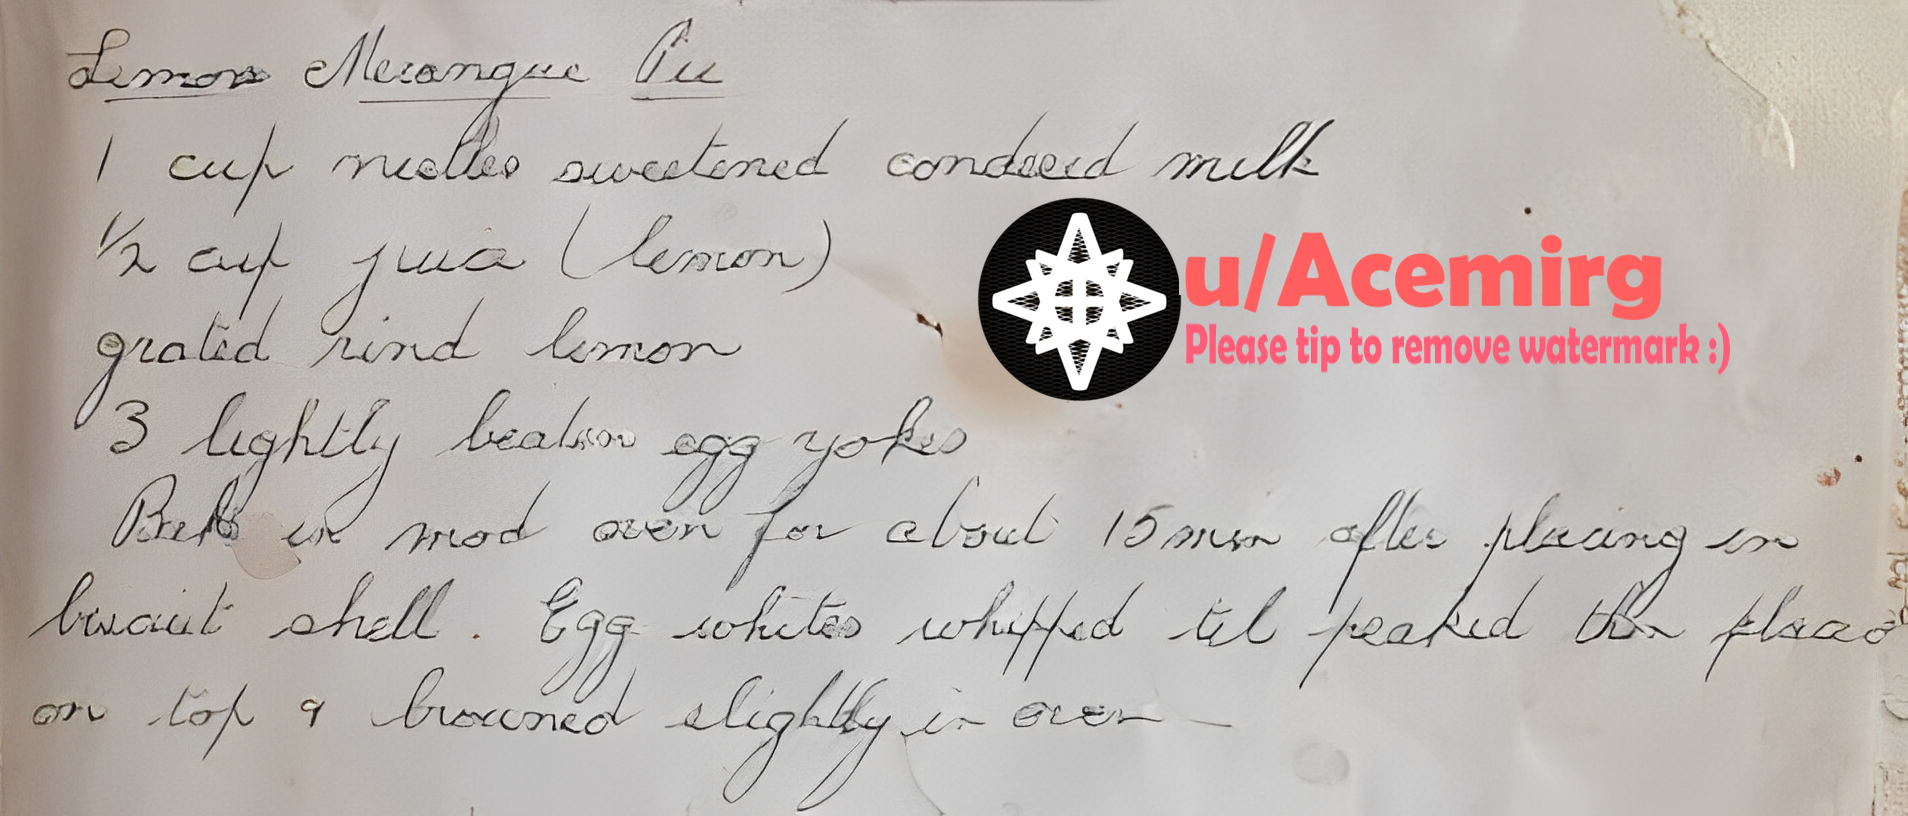 Lemon Merangue Pie
1 cup nestles sweetened condesed milk
1/2 cup juice (lemon)
u/Acemirg
Please tip to remove watermark :)
grated rind lemon
3 lightly beaten egg yokes
Bake in mod oven for about 15 min after placing in
biscuit shell. Egg whites whipped til peaked then placed
on top & browned slightly in oven